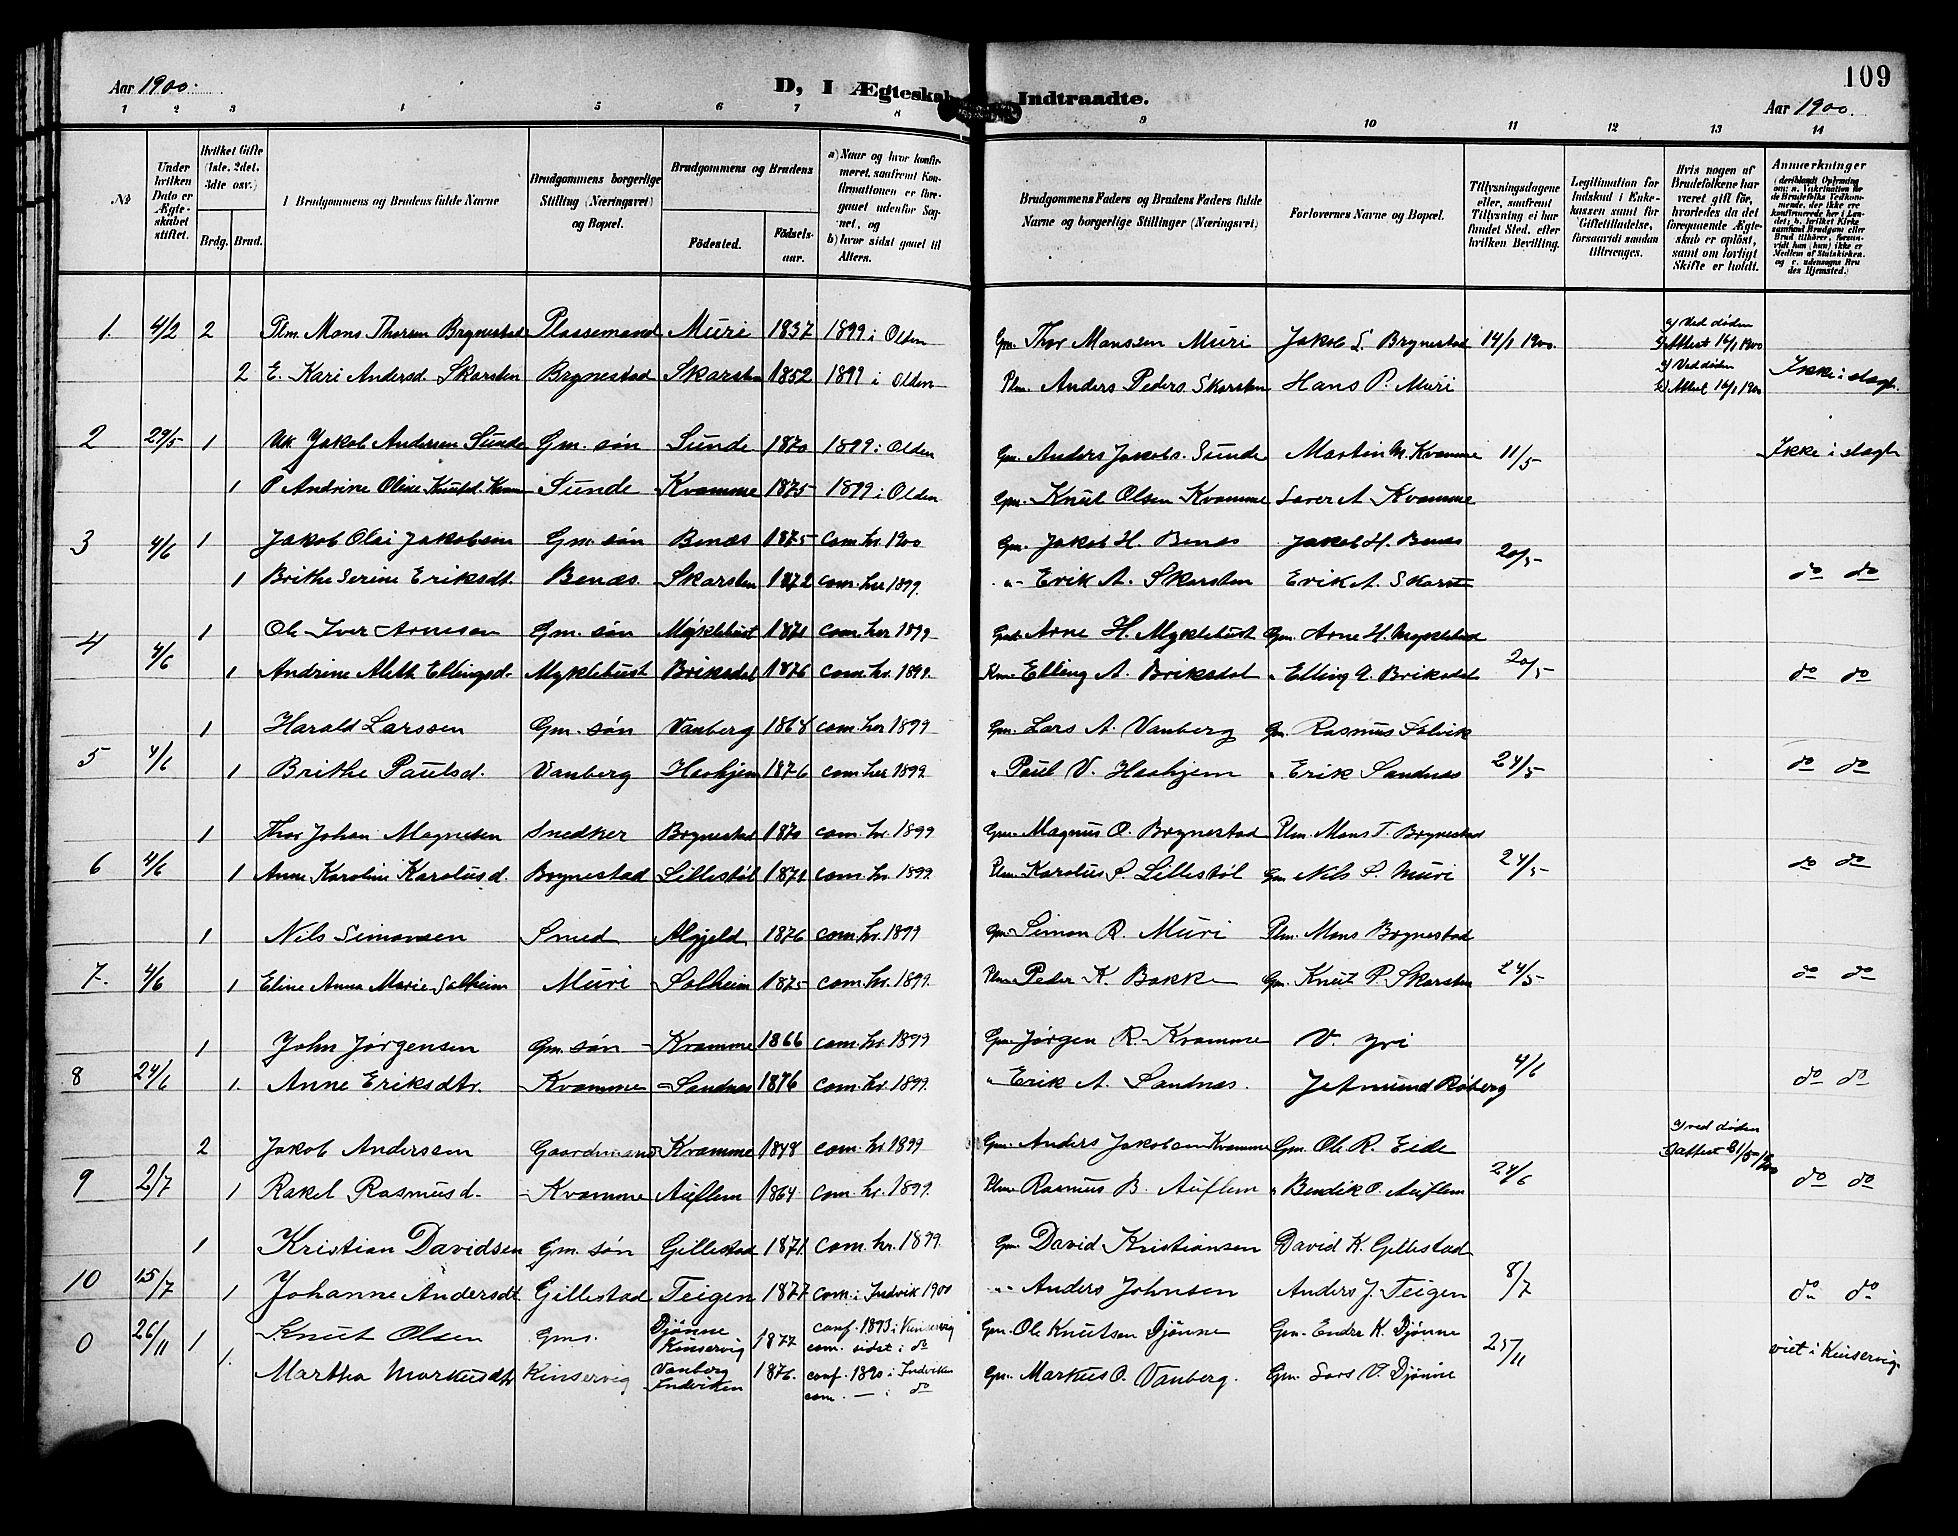 109
Aar 1900.
D, I Ægteskab Indtraadte.
Aar 1900.
1 2 3 4 5 6 7 8 9 10 11 12 13 14
№
Under hvilken Dato er Ægteskabet stiftet.
Hvilket Gifte (1ste, 2det, 3die osv.)
Brdg. Brud.
Brudgommens og Brudens fulde Navne
Brudgommens borgerlige Stilling (Næringsvei) og Bopæl.
Brudgommens og Brudens
Fødested.
Fødselsaar.
a) Naar og hvor konfirmeret, saafremt Konfirmationen er foregaaet udenfor Sognet, og
b) hvor sidst gaaet til Alters.
Brudgommens Faders og Brudens Faders fulde Navne og borgerlige Stillinger (Næringsvei)
Forlovernes Navne og Bopæl.
Tillysningsdagene eller, saafremt Tillysning ei har fundet Sted, efter hvilken Bevilling.
Legitimation for Indskud i Enkekassen samt for Giftetilladelse, forsaavidt saadan tiltrænges.
Hvis nogen af Brudefolkene har været gift før, hvorledes da det foregaaende Ægteskab er opløst, samt om lovligt Skifte er holdt.
Anmærkninger
1. 4/2 2 Plm. Mons Thorsen Brynestad Plassemand Muri 1837 1899 i Olden Gm. Thor Monssen Muri Jakob S. Brynestad 14/1 1900. a) Ved døden b) Attest 16/1 1900
2 E. Kari Andersd. Skarsten Brynestad Skarsten 1852 1899 i Olden Plm Anders Peders. Skarsten Hans P. Muri a) Ved døden b) Attest 16/1 1900 Ikke i slagt.
2 29/5 1 Uk Jakob Andersen Sunde Gm. søn Sunde 1870 1899 i Olden Gm. Anders Jakobs. Sunde Martin M. Kvamme 11/5 Ikke i slagt
1 P Andrine Oline Knutsd. Sunde Kvamme 1875 1899 i Olden Gm. Knut Olsen Kvamme A. Kvamme
3 4/6 1 Jakob Olai Jakobsen Gm. søn Benæs 1875 Com. hr. 1900 Gm. Jakob H. Benæs Jakob H. Benæs 20/5
1 Brithe Serine Eriksdt. Benæs Skarsten 1872 com. her 1899. -"- Erik A. Skarsten Erik A. Skarst do do
4 4/6 1 Ole Iver Arnesen Gm. søn Myklebust 1871 com. her 1899 Arne H. Myklebust Gm. Arne H. Myklebust 20/5
1 Andrine Aleth Ellingsd. Myklebust Briksdal 1876 com. hr. 1899. Elling A. Briksdal " Elling A. Briksdal do do
5 4/6 1 Harald Larssen Gm. søn Vanberg 1868 com. her 1899 Gm. Lars A. Vanberg Gm. Rasmus Solvik 24/5
1 Brithe Paulsd. Vanberg Haahjem 1876 com. her 1899. " Paul V. Haahjem " Erik Sandnæs do do
6 4/6 1 Thor Johan Magnesen Snedker Brynestad 1870 com. hr. 1899 Gm. Magnus O. Brynestad Plm. Mons T. Brynestad 24/5
1 Anne Karoline Karolusd. Brynestad Lillestøl 1871 com. hr. 1899. Plm. Karolus P. Lillestøl Gm. Nils S. Muri do do
7. 4/6 1 Nils Simonsen Smed Algjeld 1876 com. hr. 1899 Gm. Simon R. Muri Plm. Mons Brynestad 24/5
1 Eline Anna Marie Solheim Muri Solheim 1875 com. hr. 1899. Plm. Peder K. Bakke Gm. Knut P. Skarsten do do
8 24/6 1 John Jørgensen Gm. søn Kvamme 1866 com. hr. 1899 Gm. Jørgen R. Kvamme V. Yri 4/6
1. Anne Eriksdtr. Kvamme Sandnæs 1876 com. hr. 1899. " Erik A. Sandnæs. Jetmund Røberg do do
9 2/7 2 Jakob Anderssen Gaardmand Kvamme 1848 com. hr. 1899 Gm. Anders Jakobsen Kvamme Gm. Ole R. Eide 24/6 a) ved døden
1 Rakel Rasmusd. Kvamme Auflem 1864 com. hr. 1899. Plm. Rasmus B. Auflem " Bendik O. Auflem do do
10 15/7 1 Kristian Davidsen Gm. søn Gillestad 1871 com. hr. 1899. Gm. David Kristiansen David K. Gillestad 8/7
1 Johanne Andersdt Gillestad Teigen 1877 com. i Indvik 1900 -"- Anders Johnsen Anders J. Teigen do do
0 26/11 1 Knut Olsen Gms. Djønne Kinservig 1877 conf. 1893 i Kinservig com. sidst i do Gm. Ole Knutsen Djønne Gm. Endre K. Djønne 25/11 viet i Kinservig.
1. Martha Markusdtr Kinservig Vanberg Indviken 1876. conf. 1890 i Indviken com. — i do Gm. Markus O. Vanberg. Gm. Lars O. Djønne